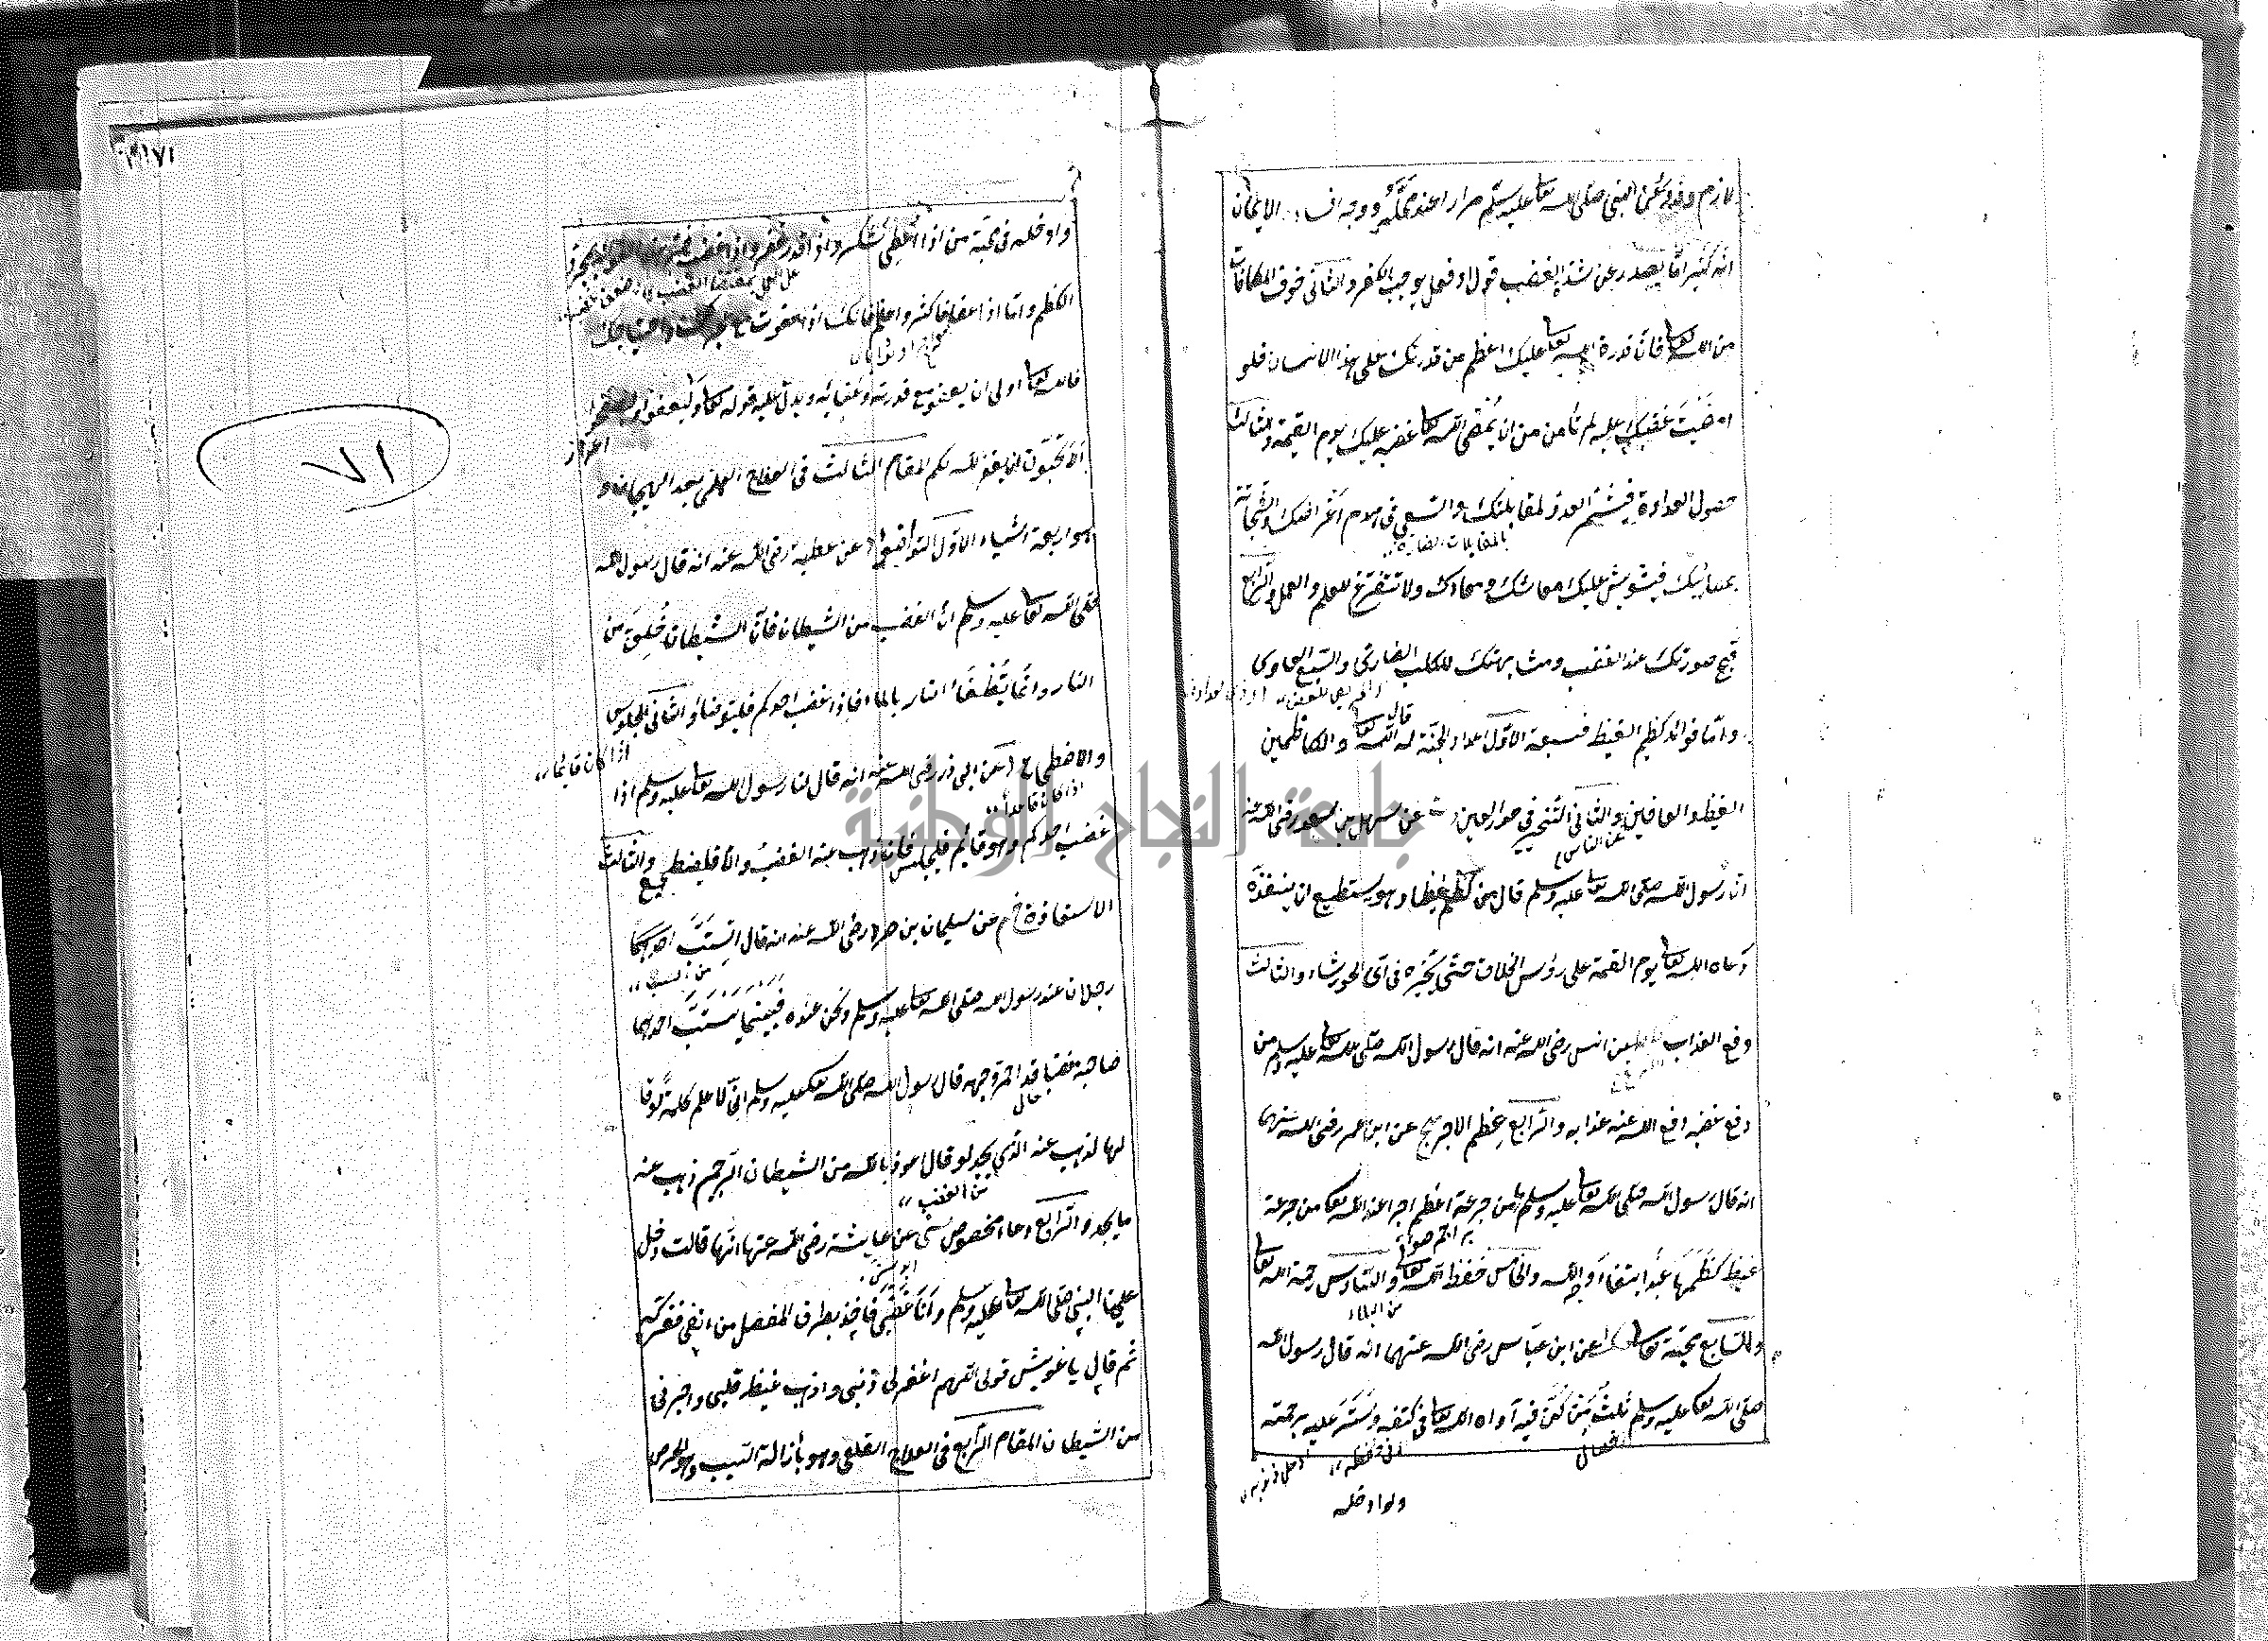 لازم وقد وقع عن النبي صلى الله تعا عليه وسلم مرارا عند محله ووجه افساد الايمان
انه كثيرا ما يصدر عن شدة الغضب قول او فعل يوجب الكفر والثاني خوف المكافات
من الله تعا فان قدرة الله تعا عليك اعظم من قدرتك على هذا الانسان فلو
امضيت غضبك عليه لم تأمن من ان يمضى الله تعا غضبه عليك يوم القيمة والثالث
حصول العداوة فيشتم العدو لمقابلتك والسعي في هدم اغراضك والشماتة
بالمقابلات الضارة
بمصائبك فيشوش عليك معاشك ومعادك ولا تتفرغ للعلم والعمل والرابع
قبح صورتك عند الغضب ومشابهتك للكلب الضاري والسبع العادي
واما فوائد كظم الغيظ فسبعة الاول اعداد الجنة له قال الله تعا والكاظمين
الغيظ والعافين والثاني التخيير في حور العين عن سهل بن سعد رضى الله عنه
عن الناس
ان رسول الله صلى الله تعا عليه وسلم قال من كظم غيظا وهو يستطيع ان ينفذه
دعاه الله تعا يوم القيمة على رؤس الخلائق حتى يخيره في اى الحور شاء والثالث
دفع العذاب عن انس رضى الله عنه انه قال رسول الله صلى الله تعا عليه وسلم من
دفع غضبه دفع الله عنه عذابه والرابع عظم الاجر مج عن ابن عمر رضى الله عنهما
انه قال رسول الله صلى الله تعا عليه وسلم ما من جرعة اعظم اجرا عند الله تعا من جرعة
غيظ كظمها عبد ابتغاء وجه الله والخامس حفظ الله تعا والسادس رحمة الله تعا
من البلاء
والسابع محبة تعا عن ابن عباس رضى الله عنهما انه قال رسول الله
صلى الله تعا عليه وسلم ثلث من كن فيه آواه الله تعا في كنفه وستر عليه برحمته
وادخله
وادخله في محبة من اذا اعطى شكر واذا قدر غفر واذا غضب فتر
الكظم واما اذا عفا فاكثر واعظم فانك اذا عفوت مع عجزك واحتياجك
فالله تعا اولى ان يعفو مع قدرته وغنائه ويدل عليه قوله تعا وليعفوا وليصفحوا
الا تحبون ان يغفر الله لكم المقام الثالث في العلاج العلمى بعد الهيجان و
هو اربعة اشياء الاول التوضى د عن عطية رضى الله عنه انه قال رسول الله
صلى الله تعا عليه وسلم ان الغضب من الشيطان فان الشيطان خلق من
النار وانما تطفأ النار بالماء فاذا غضب احدكم فليتوضأ والثاني الجلوس
اذا كان قائما
والاضطجاع د عن ابى ذر رضى الله عنه انه قال لنا رسول الله تعا عليه وسلم اذا
اذا كان قاعدا
غضب احدكم وهو قائم فليجلس فان ذهب عنه الغضب والا فليضطجع والثالث
الاستعاذة خ م عن سليمان بن صرد رضى الله عنه انه قال استب
من السب
رجلان عند رسول الله صلى الله تعا عليه وسلم ونحن عنده فبينما يستب احدهما
صاحبه مغضبا قد احمر وجهه قال رسول الله صلى الله تعا عليه وسلم انى لاعلم كلمة لو قا
لها لذهب عنه الذي يجد لو قال اعوذ بالله من الشيطان الرجيم ذهب عنه
من الغضب
ما يجد والرابع دعاء مخصوص سنى عن عايشة رضى الله عنها انها قالت دخل
علينا النبي صلى الله تعا عليه وسلم وانا غضبى فاخذ بطرف المفصل من انفى ففركه
ثم قال يا عويش قولى اللهم اغفر لى ذنبى واذهب غيظ قلبى واجرنى
من الشيطان المقام الرابع في العلاج القلعى وهو بأزالة السبب وهو الحرص
٧١
جامعة النجاح الوطنية